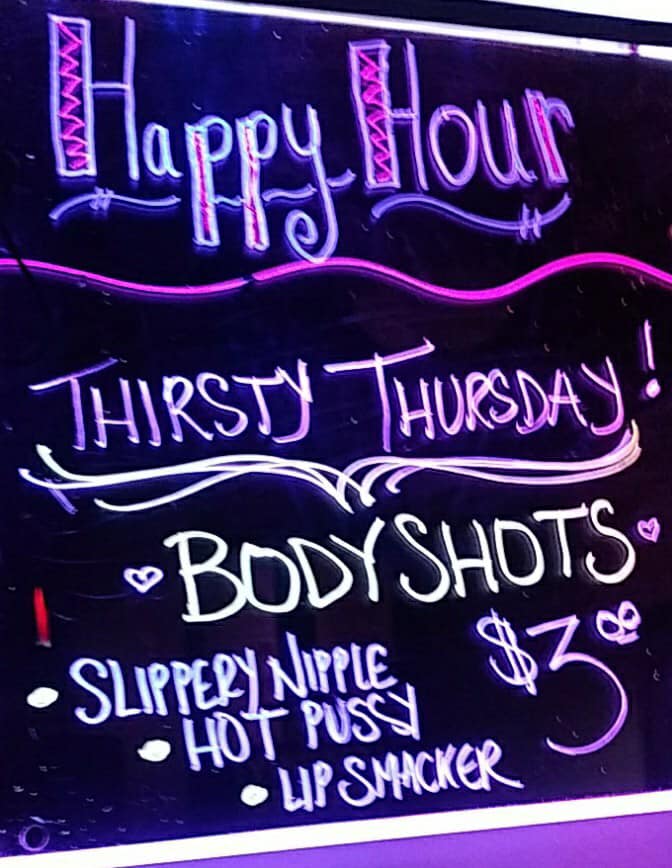 Happy Hour
THIRSTY THURSDAY!
BODYSHOTS
$3.00
• SLIPPERY NIPPLE
• HOT PUSSY
• LIP SMACKER